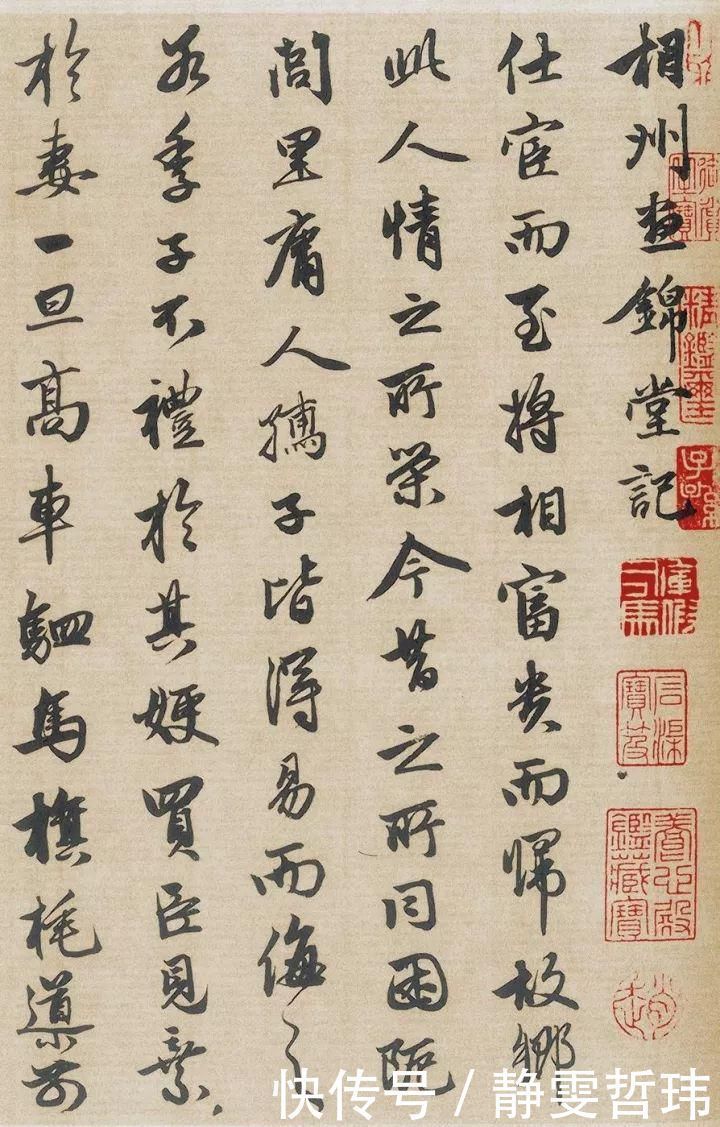 相州晝錦堂記
仕宦而至將相富貴而歸故鄉
此人情之所榮今昔之所同困阨
閭里庸人孺子皆得易而侮之
若季子不禮於其嫂買臣見棄
於妻一旦高車駟馬旗旄導前
石渠寶笈
養心殿鑑藏寶
快传号 / 静雯哲玮